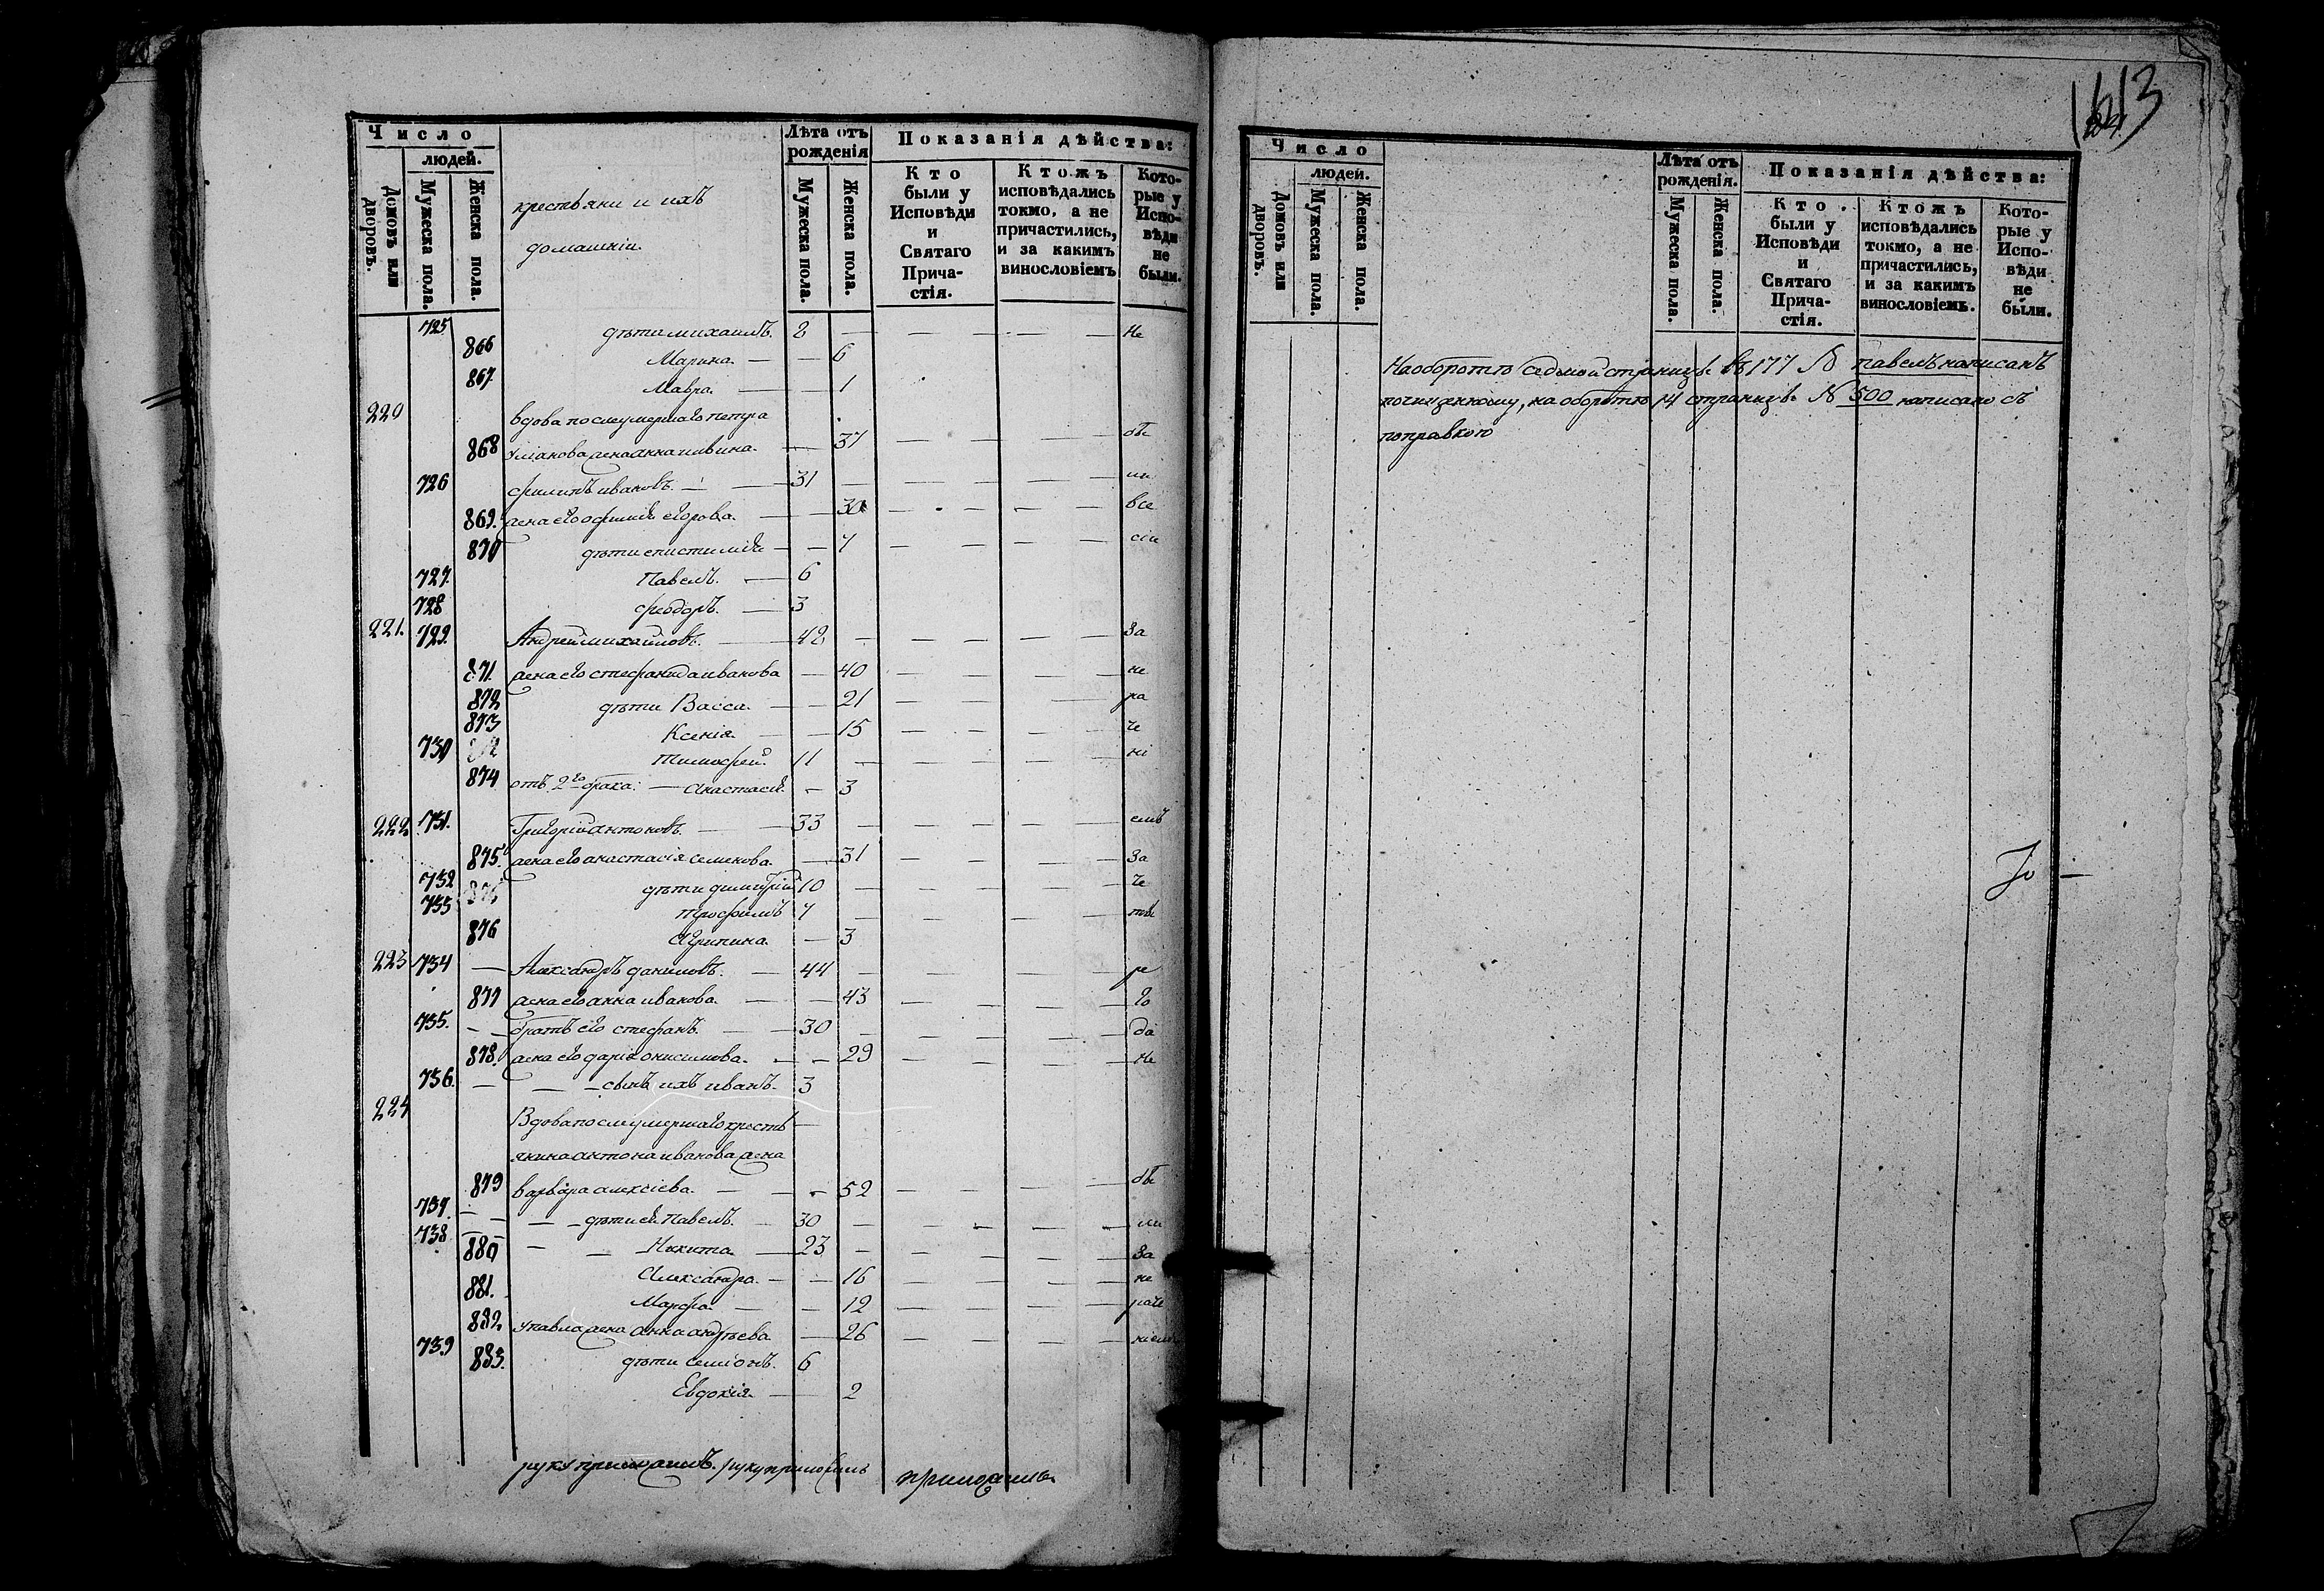 Число
людей.
Домовъ или дворовъ.
Мужеска пола.
Женска пола.
крестьяни и ихъ
домашніи.
Лѣта отъ рожденія
Мужеска пола.
Женска пола.
Показанія дѣйства:
Кто были у Исповѣди и Святаго Прича- стія.
Ктожъ исповѣдались токмо, а не причастились, и за какимъ винословіемъ
Кото- рые у Испо- вѣди не были.
725 дѣти михаилъ. 2 — — — — не
866 Марина. — — 6
867 Мавра. — — 1
220 вдова послеумершаго петра
868 жена анна — 37 — — — — бы
726 филипъ ивановъ. — 31 — — — — ли
869. жена его офимія егорова. — — 30 — — — — все
870 дѣти епистимія — — 7 — — — сіи
727. Павелъ. — 6
728 феодоръ. — 3
221. 729. Андрей михайловъ. — 42 — — — — За
871. жена его стефанида иванова — 40 — — — не
872 дѣти Васса. — — 21 — — — ра
873 Ксенія. — — 15 — — — че
730 Тимофей. 11 — — — — ні
874 отъ 2го брака: — Анастасія. — 3
222 731. Григорій антоновъ. — 33 — — — — емъ
875. жена его анастасія семенова. — 31 — — — За
732 дѣти димитрій 10 — — — — че
733 трофимъ 7 — — — —
876 Агрипина. — 3
223 734 — Александръ даниловъ. — 44 — — — — ре
877 жена его анна иванова. — — 43 — — — го
735. — — братъ его стефанъ. — — 30 — — — — да
878. жена его дарія онисимова. — — 29 — — — не
736. — — — сынъ ихъ иванъ. 3
224 Вдова послеумершаго кресть
янина антона иванова жена
879 варвара алексіева. — — — 52 — — — — бы
737. — — — дѣти ея Павелъ. — 30 — — — — ли
738 — — — Никита. — 23 — — — — За
880 Александра. — — 16 — — — не
881. Марфа. — — 12 — — — — раче
882 у павла жена анна андрѣева — 26 — — — ніемъ
739 дѣти семіонъ. 6
883. Евдокія. — 2
руку приложилъ. руку приложилъ приложилъ
613
Число
людей.
Домовъ или дворовъ.
Мужеска пола.
Женска пола.
Лѣта отъ рожденія.
Мужеска пола.
Женска пола.
Показанія дѣйства:
Кто были у Исповѣди и Святаго Прича- стія.
Ктожъ исповѣдались токмо, а не причастились, и за какимъ винословіемъ.
Кото- рые у Испо- вѣди не были.
На оборотѣ седьмой страницы въ 177 № павелъ написанъ
по чищенному, на оборотѣ 14 страницы № 500 написано съ
поправкою